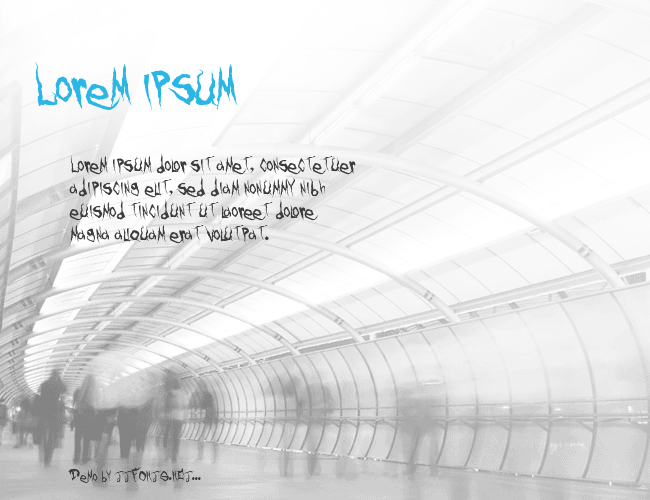 Lorem ipsum
Lorem ipsum dolor sit amet, consectetuer
adipiscing elit, sed diam nonummy nibh
euismod tincidunt ut laoreet dolore
magna aliquam erat volutpat.
Demo by jjFonts.net...